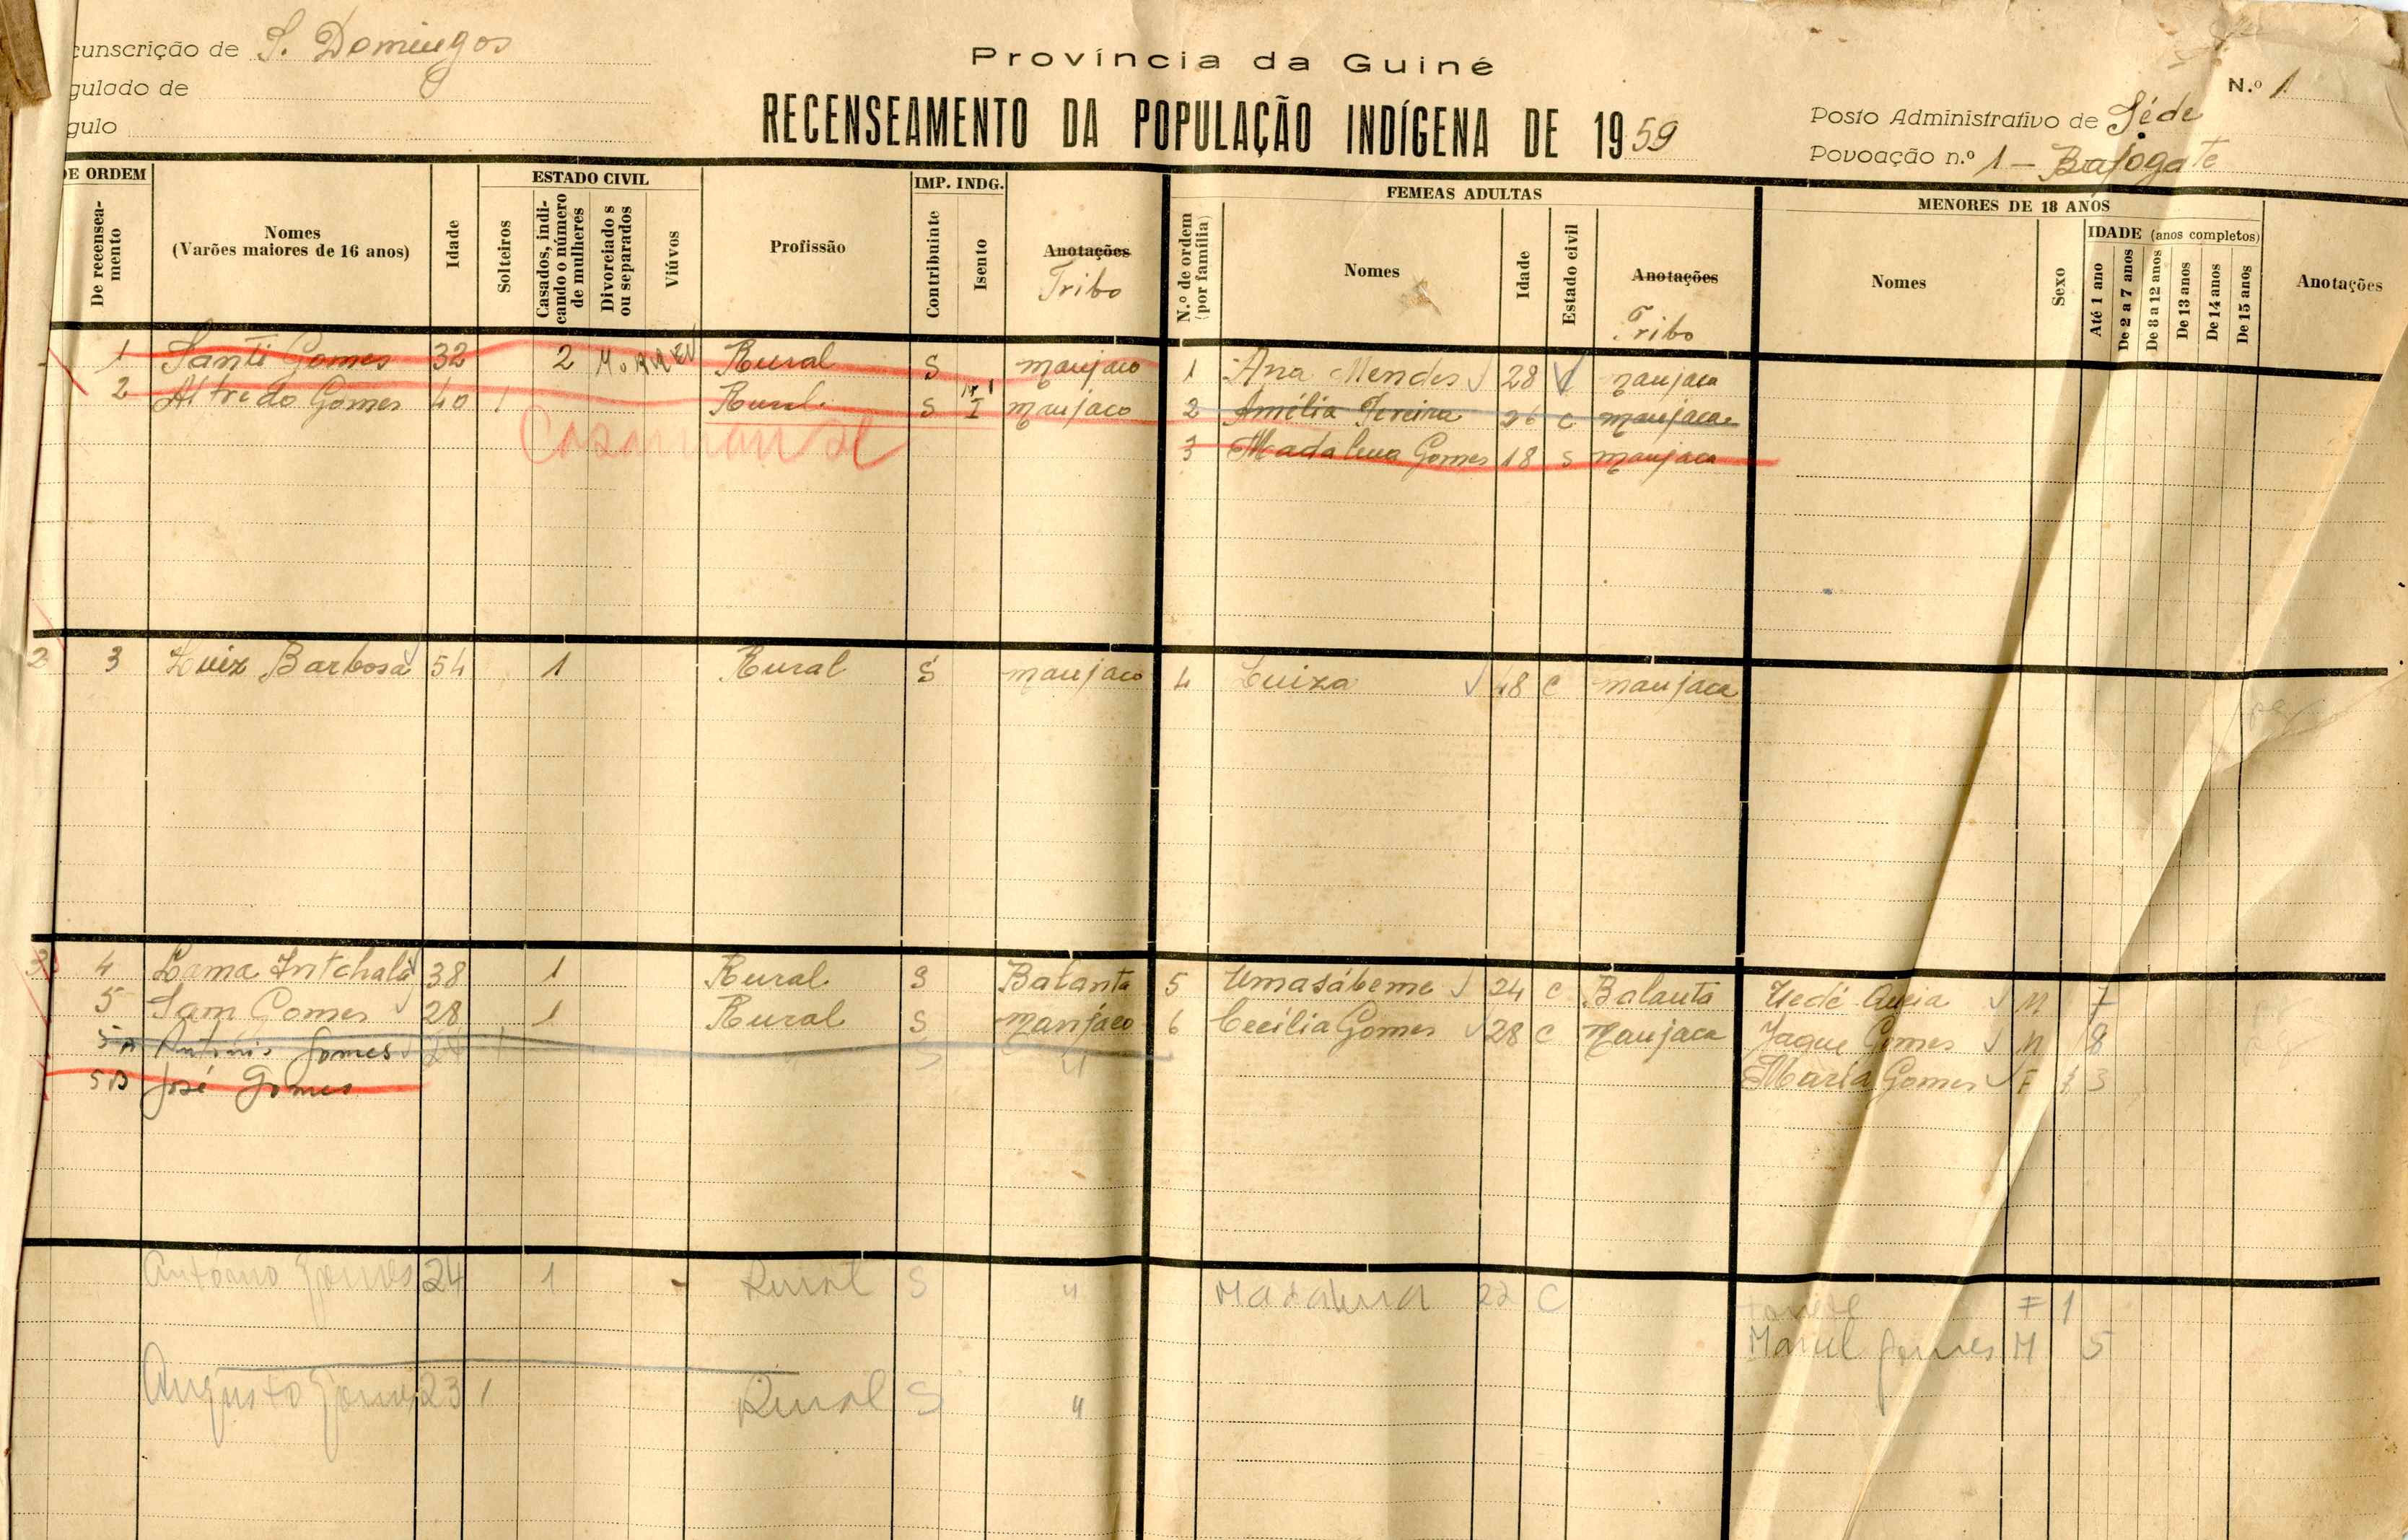 cunscrição de S. Domingos
gulado de
gulo
Província da Guiné
RECENSEAMENTO DA POPULAÇÃO INDÍGENA DE 1959
N.º 1
Posto Administrativo de Séde
Povoação n.º 1 - Bajogate
DE ORDEM
De recenseamento
Nomes
(Varões maiores de 16 anos)
Idade
ESTADO CIVIL
Solteiros
Casados, indicando o número de mulheres
Divorciados ou separados
Viúvos
Profissão
IMP. INDG.
Contribuinte
Isento
Anotações
Tribo
FEMEAS ADULTAS
N.º de ordem (por família)
Nomes
Idade
Estado civil
Anotações
Tribo
MENORES DE 18 ANOS
Nomes
Sexo
IDADE (anos completos)
Até 1 ano
De 2 a 7 anos
De 8 a 12 anos
De 13 anos
De 14 anos
De 15 anos
Anotações
1 Santi Gomes 32 2 Morreu Rural S manjaco 1 Ana Mendes 28 V manjaca
2 Alfredo Gomes 40 1 Rural S I manjaco 2 Amélia Pereira 26 C manjaca
Casamanse
3 Madalena Gomes 18 S manjaca
2 3 Luiz Barbosa 54 1 Rural S manjaco 4 Luiza 48 C manjaca
3 4 Lama Intchalá 38 1 Rural S Balanta 5 Umasábeme 24 C Balanta Uedé M 7
5 Sam Gomes 28 1 Rural S manjaco 6 Cecília Gomes 28 C manjaca Jaque Gomes M 8
5A António Gomes S " Maria Gomes F 3
5B José Gomes
Antonio Gomes 24 1 Rural S " Madalena 22 C F 1
Manel Gomes M 5
Augusto Gomes 23 1 Rural S "